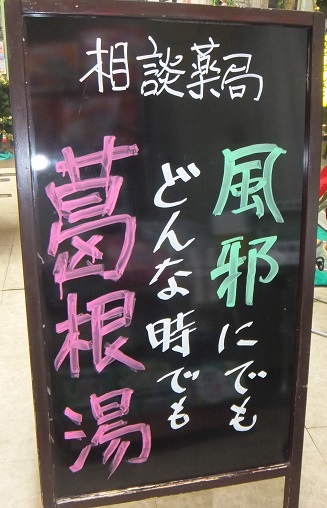 相談薬局
風邪にでも
どんな時でも
葛根湯